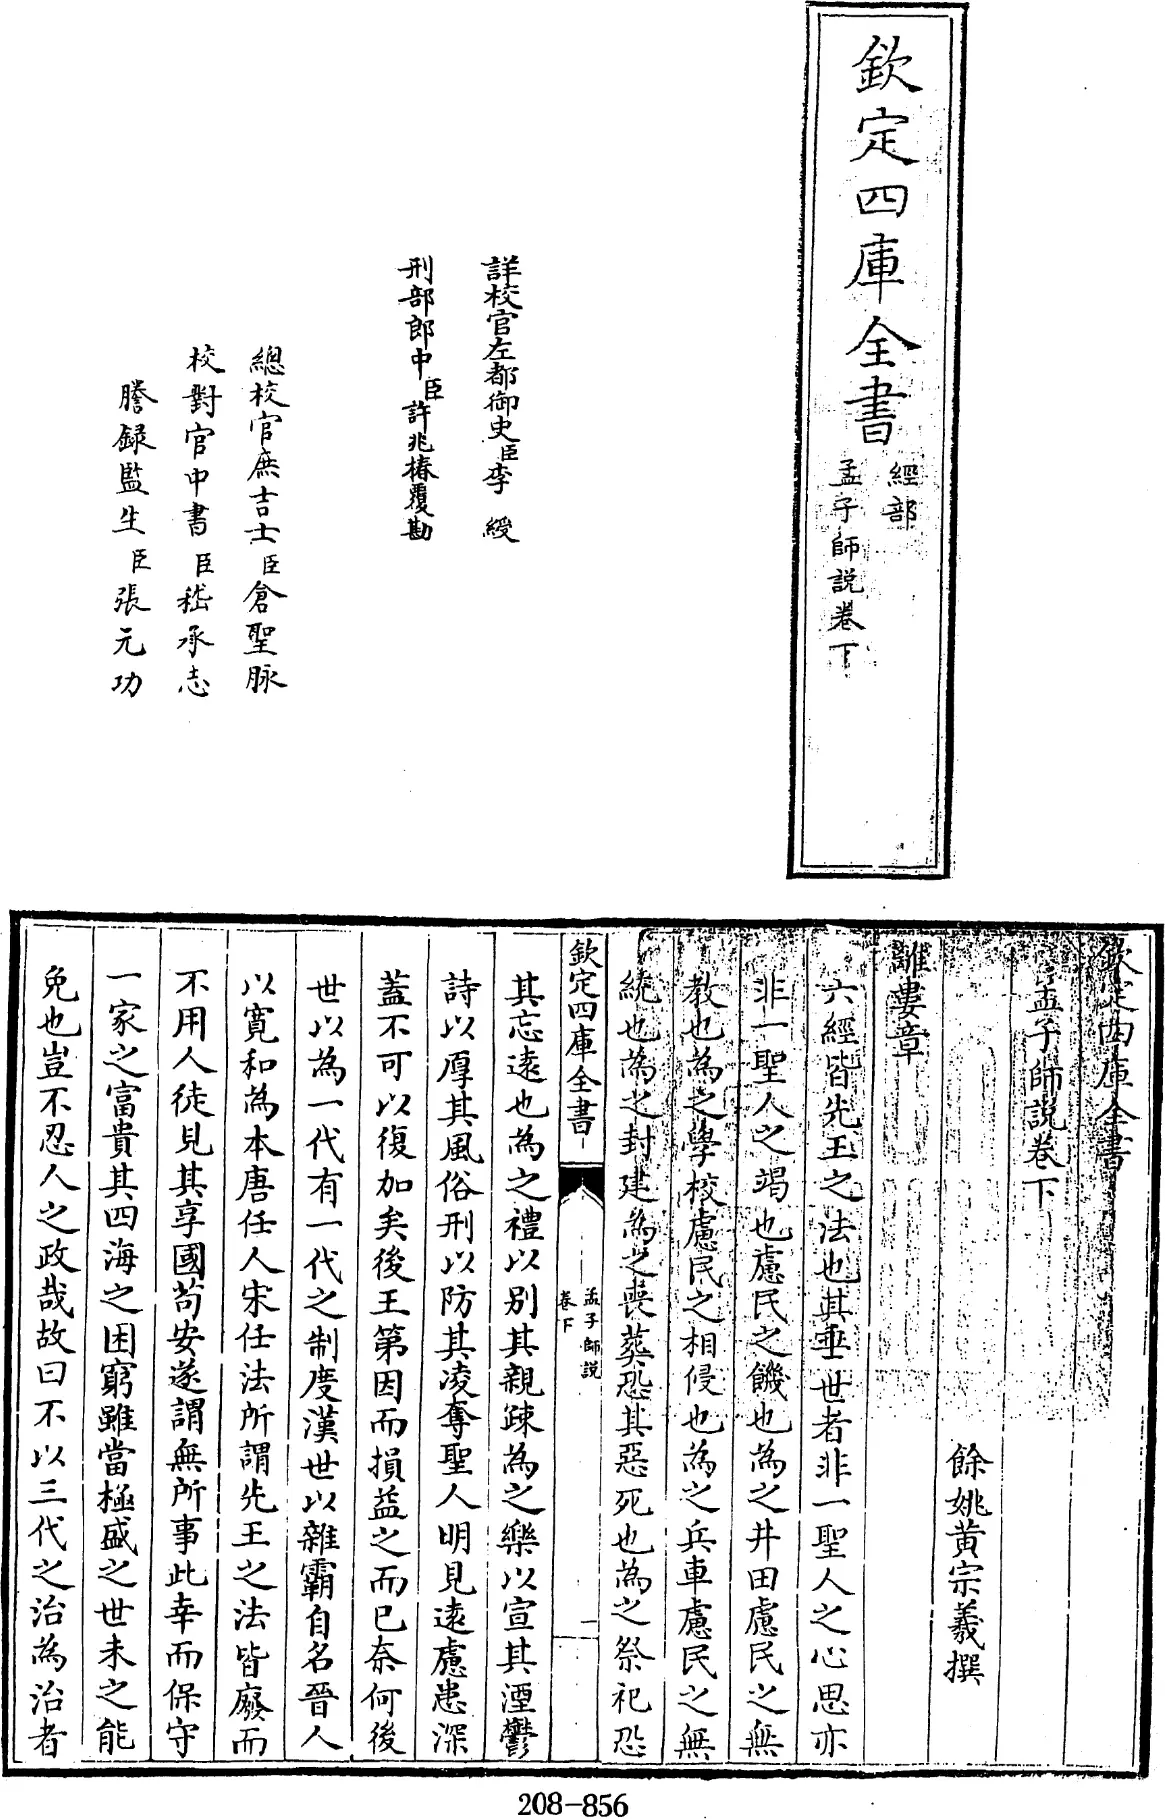 欽定四庫全書
經部
孟子師說卷下
詳校官左都御史臣李綬
刑部郎中臣許兆椿覆勘
總校官庶吉士臣倉聖脉
校對官中書臣嵇承志
謄錄監生臣張元功
欽定四庫全書
孟子師說卷下
餘姚黃宗羲撰
離婁章
六經皆先王之法也其垂世者非一聖人之心思亦
非一聖人之竭也慮民之饑也為之井田慮民之無
教也為之學校慮民之相侵也為之兵車慮民之無
統也為之封建為之喪葬恐其惡死也為之祭祀恐
欽定四庫全書
孟子師說
卷下
一
其忘遠也為之禮以別其親疎為之樂以宣其湮鬱
詩以厚其風俗刑以防其凌奪聖人明見遠慮患深
蓋不可以復加矣後王第因而損益之而已奈何後
世以為一代有一代之制度漢世以雜霸自名晉人
以寬和為本唐任人宋任法所謂先王之法皆廢而
不用人徒見其享國苟安遂謂無所事此幸而保守
一家之富貴其四海之困窮雖當極盛之世未之能
免也豈不忍人之政哉故曰不以三代之治為治者
208-856